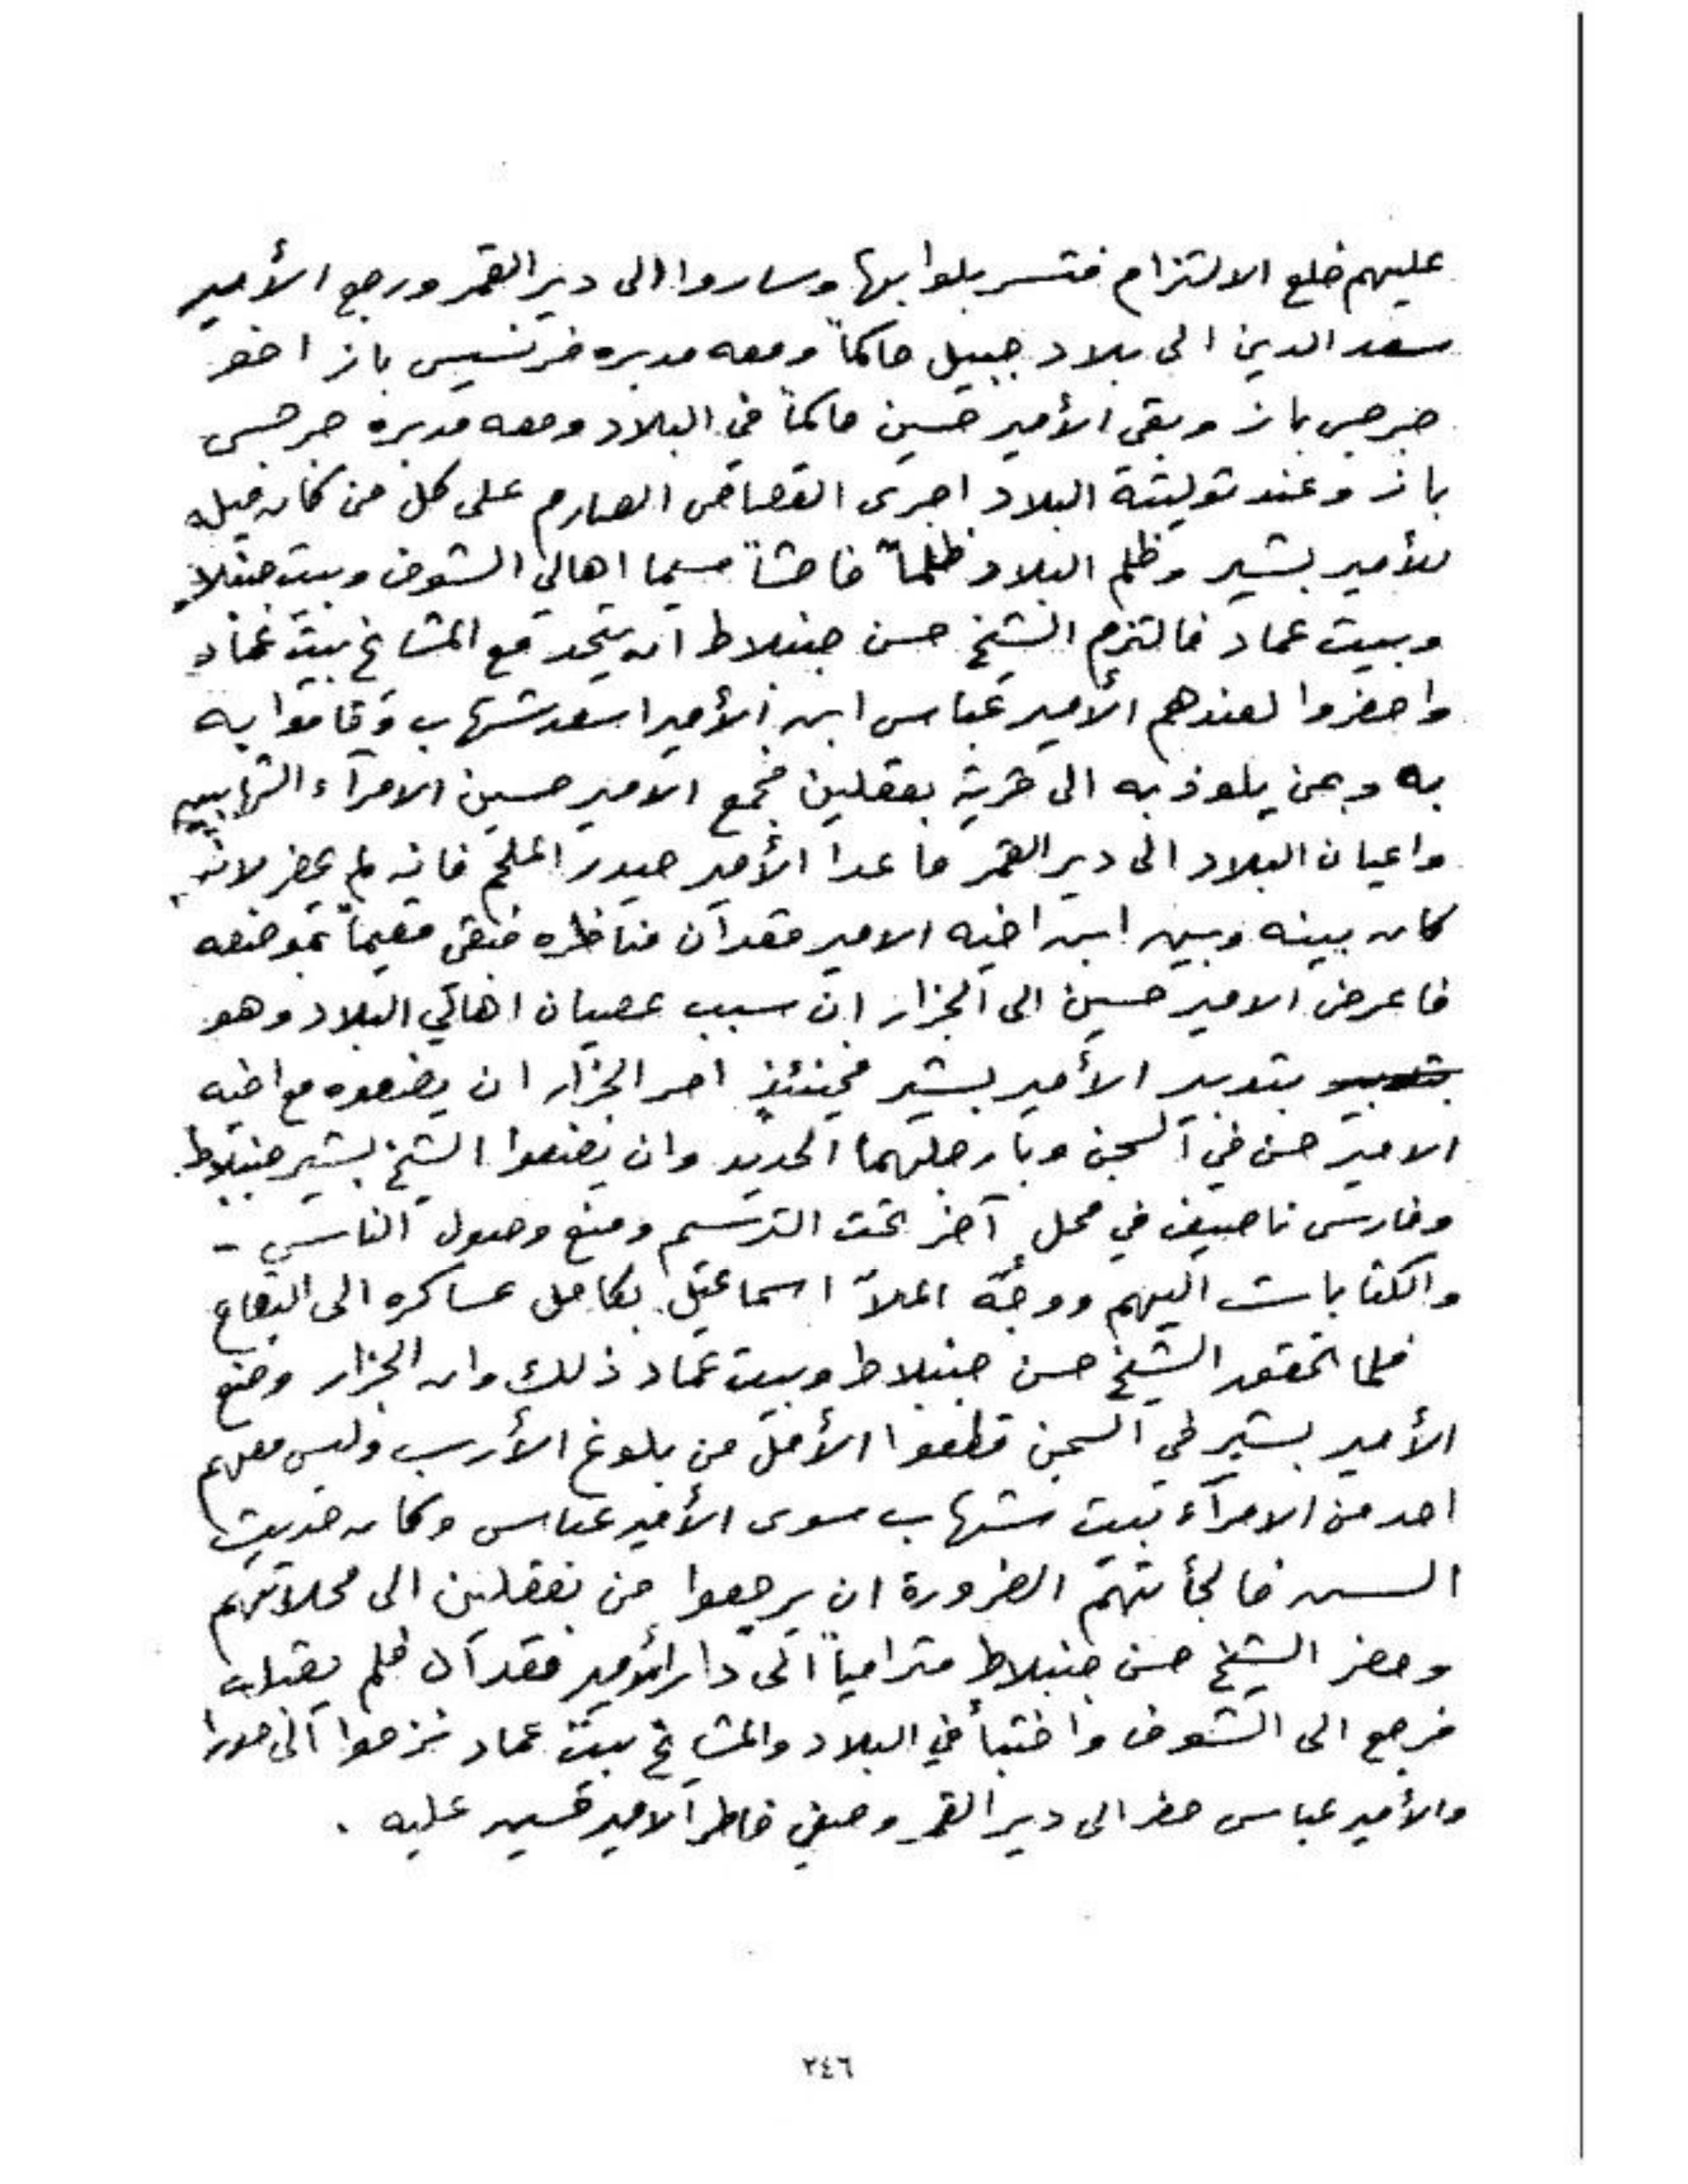 عليهم خلع الالتزام فتسربلوا بها وساروا الى دير القمر ورجع الأمير
سعد الدين الى بلاد جبيل حاكماً ومعه مدبره فرنسيس باز اخو
جرجس باز وبقى الأمير حسين حاكماً في البلاد ومعه مدبره جرجس
باز وعند توليته البلاد اجرى القصاص الصارم على كل من كان ميله
للأمير بشير وظلم البلاد ظلماً فاحشاً سيما اهالي الشوف وبيت جنبلاط
وبيت عماد فالتزم الشيخ حسن جنبلاط ان يتحد مع المشايخ بيت عماد
واحضروا لعندهم الأمير عباس ابن الأمير اسعد شهاب وقاموا به
به وبمن يلوذ به الى قرية بعقلين فجمع الامير حسين الامرآء الشهابيين
واعيان البلاد الى دير القمر ما عدا الأمير حيدر الملحم فانه لم يحضر لانه
كان بينه وبين ابن اخيه الامير قعدان مناظره فبقى مقيماً بموضعه
فاعرض الامير حسين الى الجزار ان سبب عصيان اهالي البلاد وهو
بتدبير بتدبير الأمير بشير فحينئذٍ امر الجزار ان يضعوه مع اخيه
الامير حسن في السجن وبارجلهما الحديد وان يضعوا الشيخ بشير جنبلاط
وفارس ناصيف في محل آخر تحت الترسيم ومنع وصول الناس -
والكتابات اليهم ووجّه الملاّ اسماعيل بكامل عساكره الى البقاع
فلما تحقق الشيخ حسن جنبلاط وبيت عماد ذلك وان الجزار وضع
الأمير بشير في السجن قطعوا الأمل من بلوغ الأرب وليس معهم
احد من الامرآء بيت شهاب سوى الأمير عباس وكان حديث
السن فالجأتهم الضرورة ان يرجعوا من بعقلين الى محلاتهم
وحضر الشيخ حسن جنبلاط مترامياً الى دار الأمير قعدان فلم يقبله
فرجع الى الشوف واختبأ في البلاد والمشايخ بيت عماد نزحوا الى حورا
والأمير عباس حضر الى دير القمر وصفي خاطر الامير حسين عليه .
٢٤٦